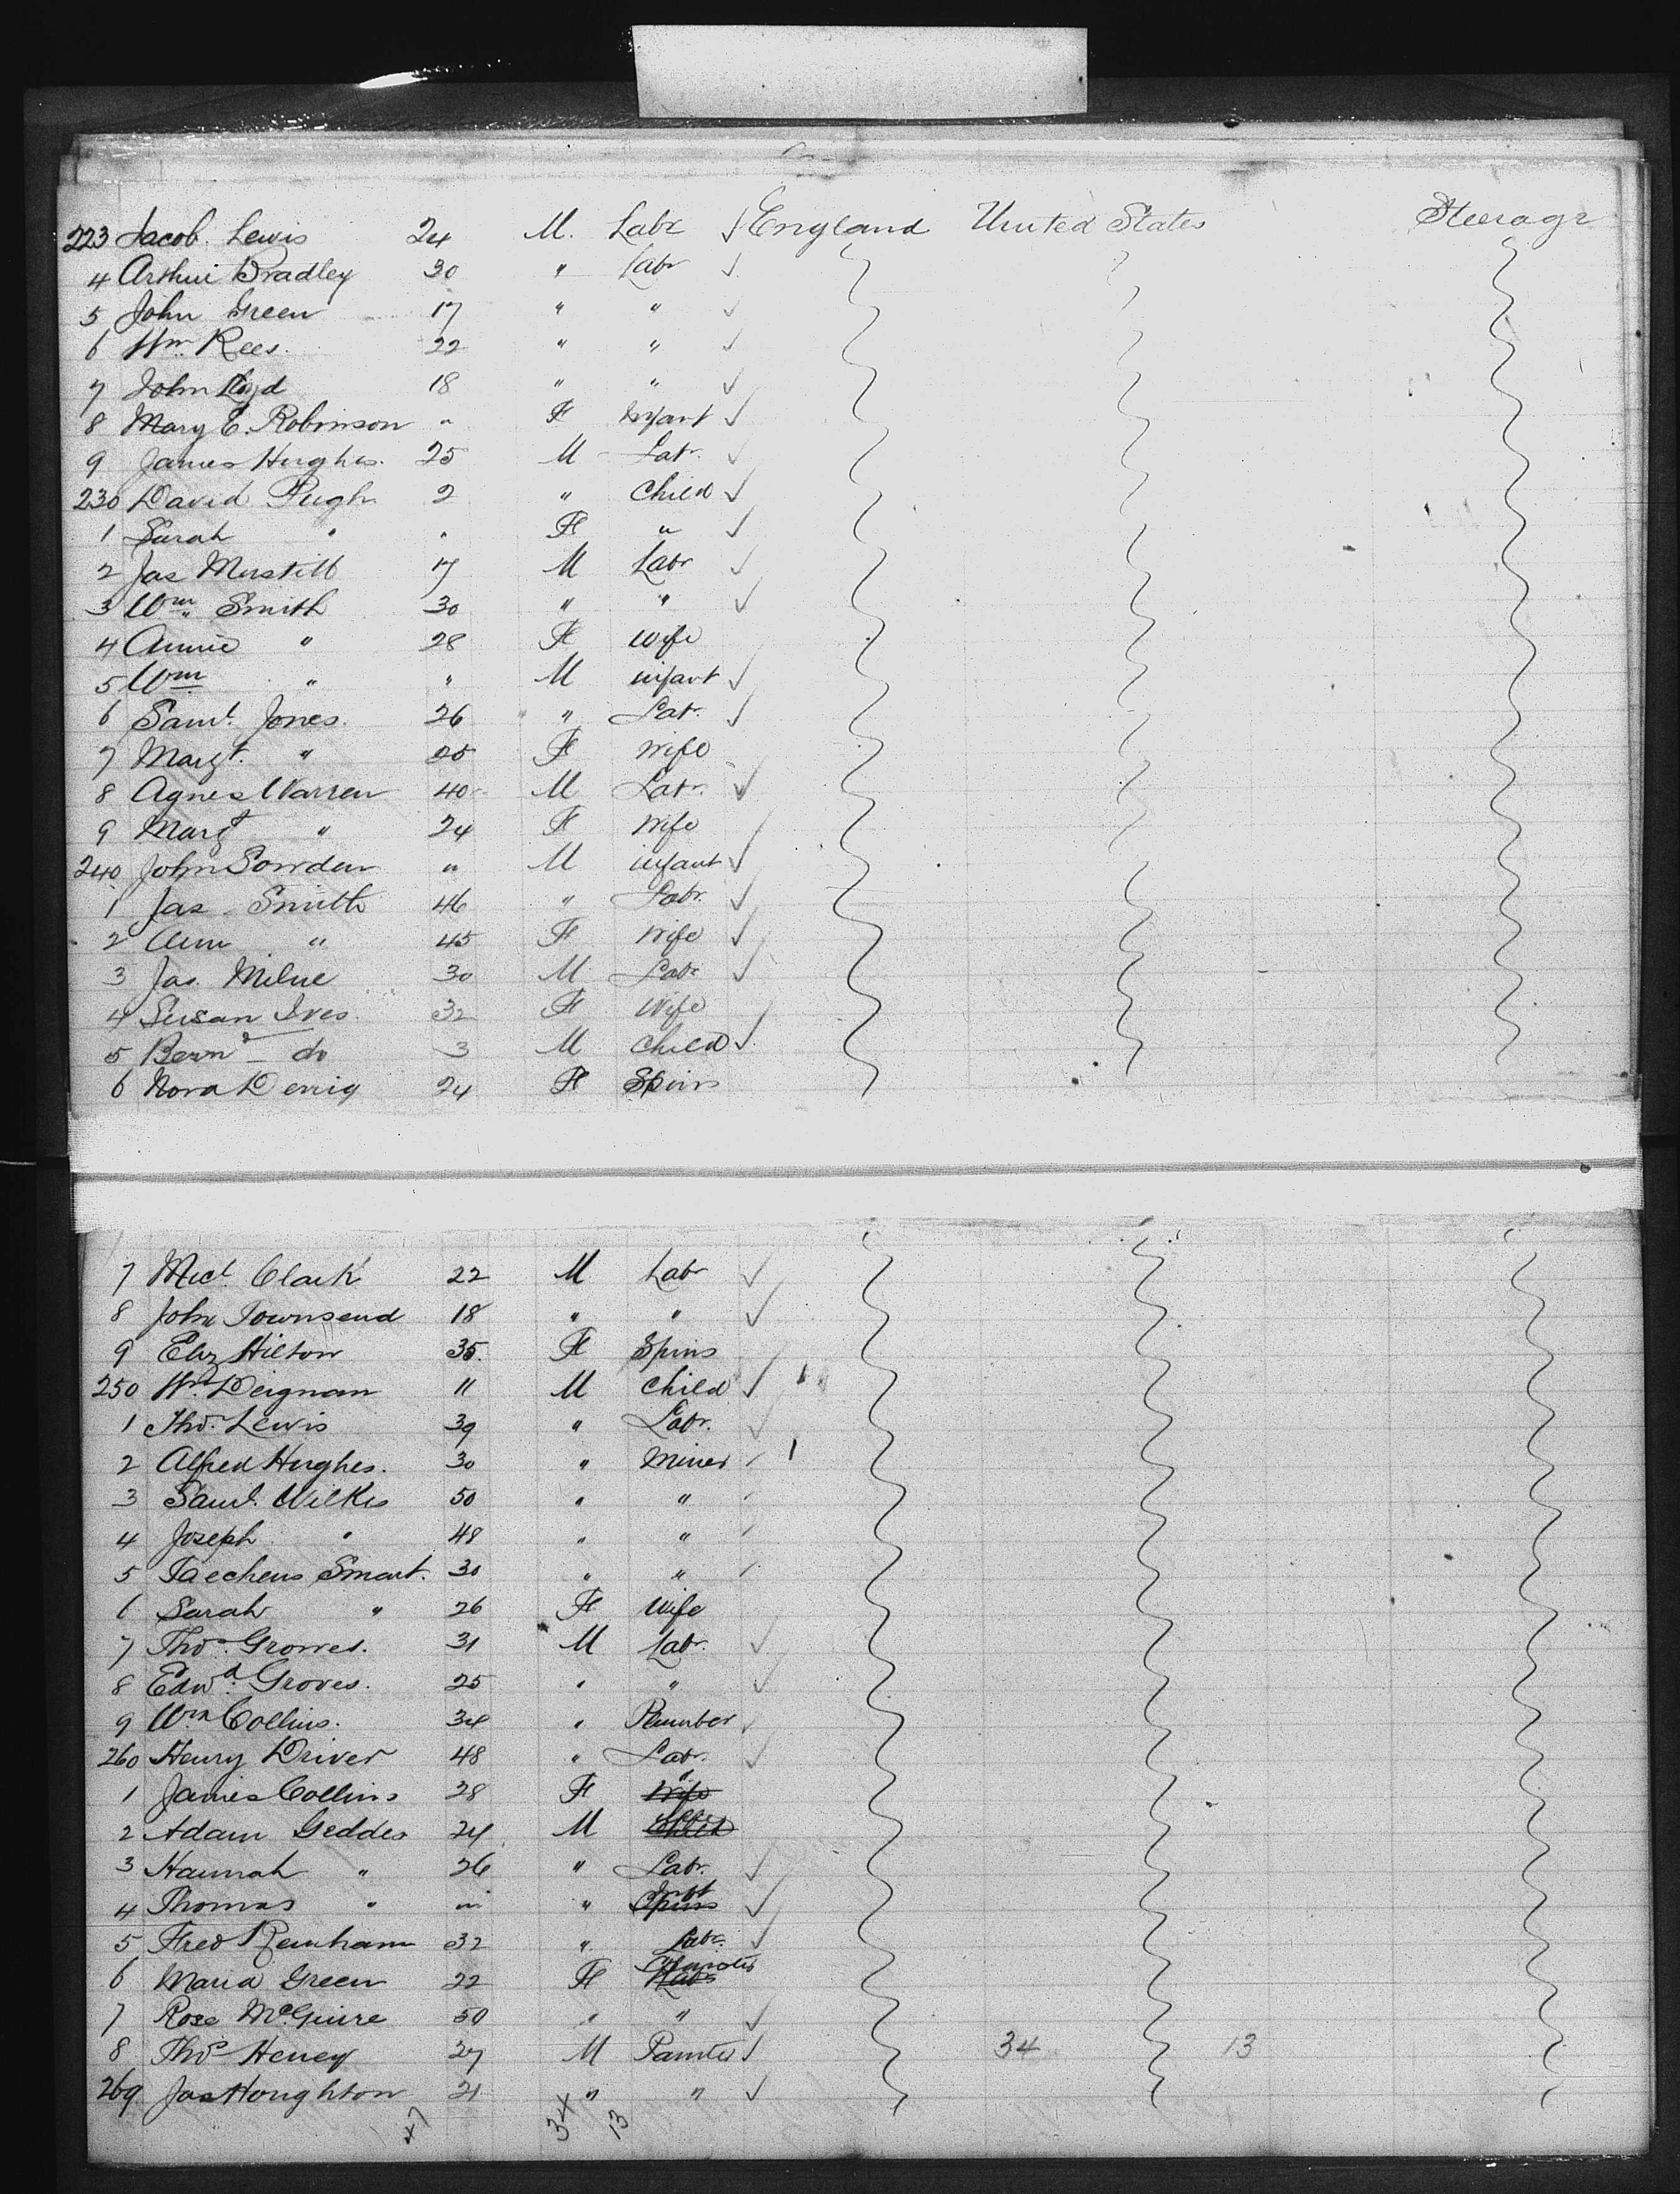 223 Jacob. Lewis 24 M. Labr ✓ England United States Steerage
4 Arthur Bradley 30 " Labr ✓
5 John Green 17 " " ✓
6 Wm Rees. 22 " " ✓
7 John Lloyd 18 " " ✓
8 Mary E. Robinson " F Infant ✓
9 James Hughes. 25 M Labr. ✓
230 David Pugh 2 " Child ✓
1 Sarah " " F " ✓
2 Jas 17 M Labr ✓
3 Wm Smith 30 " " ✓
4 Annie " 28 F Wife
5 Wm " " M infant ✓
6 Saml. Jones. 26 " Labr. ✓
7 Margt. " 25 F Wife
8 Agnes Warren 40 M Labr. ✓
9 Margt " 24 F Wife
240 John Sowden " M infant ✓
1 Jas Smith 46 " Labr. ✓
2 Ann " 45 F Wife ✓
3 Jas. Milne 30 M Labr ✓
4 Susan Ives. 32 F Wife
5 Bernd - do 3 M Child ✓
6 Nora Derrig 24 F Spins
7 Micl. Clark 22 M Labr ✓
8 John Townsend 18 " " ✓
9 Eliz Hilton 35. F Spins
250 Wm Deignan 11 M Child ✓ 1
1 Tho. Lewis 39 " Labr. ✓
2 Alfred Hughes. 30 " Miner ✓ 1
3 Saml. Wilkes 50 " " ✓
4 Joseph " 48 " " ✓
5 Smart. 30 " " ✓
6 Sarah " 26 F Wife
7 Thos. Groves. 31 M Labr. ✓
8 Edwd. Groves. 25 " " ✓
9 Wm Collins. 34 " Plumber ✓
260 Henry Driver 48 " Labr. ✓
1 James Collins 28 F Wife "
2 Adam Geddes 24 M Child
3 Hannah " 26 " Labr. ✓
4 Thomas " " " Spins Inft ✓
5 Fred 32 " Labr. ✓
6 Maria Green 22 F Labr
7 Rose McGuire 50 " " ✓
8 Thos Heney 27 M Painter ✓ 34 13
269 Jas Houghton 21 " " ✓
47 34 13